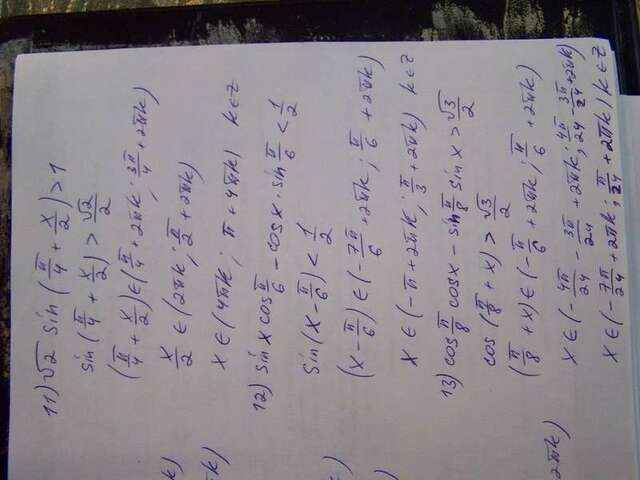 11) √2 sin(π/4 + x/2) > 1
sin(π/4 + x/2) > √2/2
(π/4 + x/2) ∈ (π/4 + 2πk; 3π/4 + 2πk)
x/2 ∈ (2πk; π/2 + 2πk)
x ∈ (4πk; π + 4πk) k ∈ Z
12) sin x cos π/6 - cos x · sin π/6 < 1/2
sin(x - π/6) < 1/2
(x - π/6) ∈ (-7π/6 + 2πk; π/6 + 2πk)
x ∈ (-π + 2πk; π/3 + 2πk) k ∈ Z
13) cos π/8 cos x - sin π/8 sin x > √3/2
cos(π/8 + x) > √3/2
(π/8 + x) ∈ (-π/6 + 2πk; π/6 + 2πk)
x ∈ (-4π/24 - 3π/24 + 2πk; 4π/24 - 3π/24 + 2πk)
x ∈ (-7π/24 + 2πk; π/24 + 2πk) k ∈ Z
k)
πk)
k)
)
2πk)